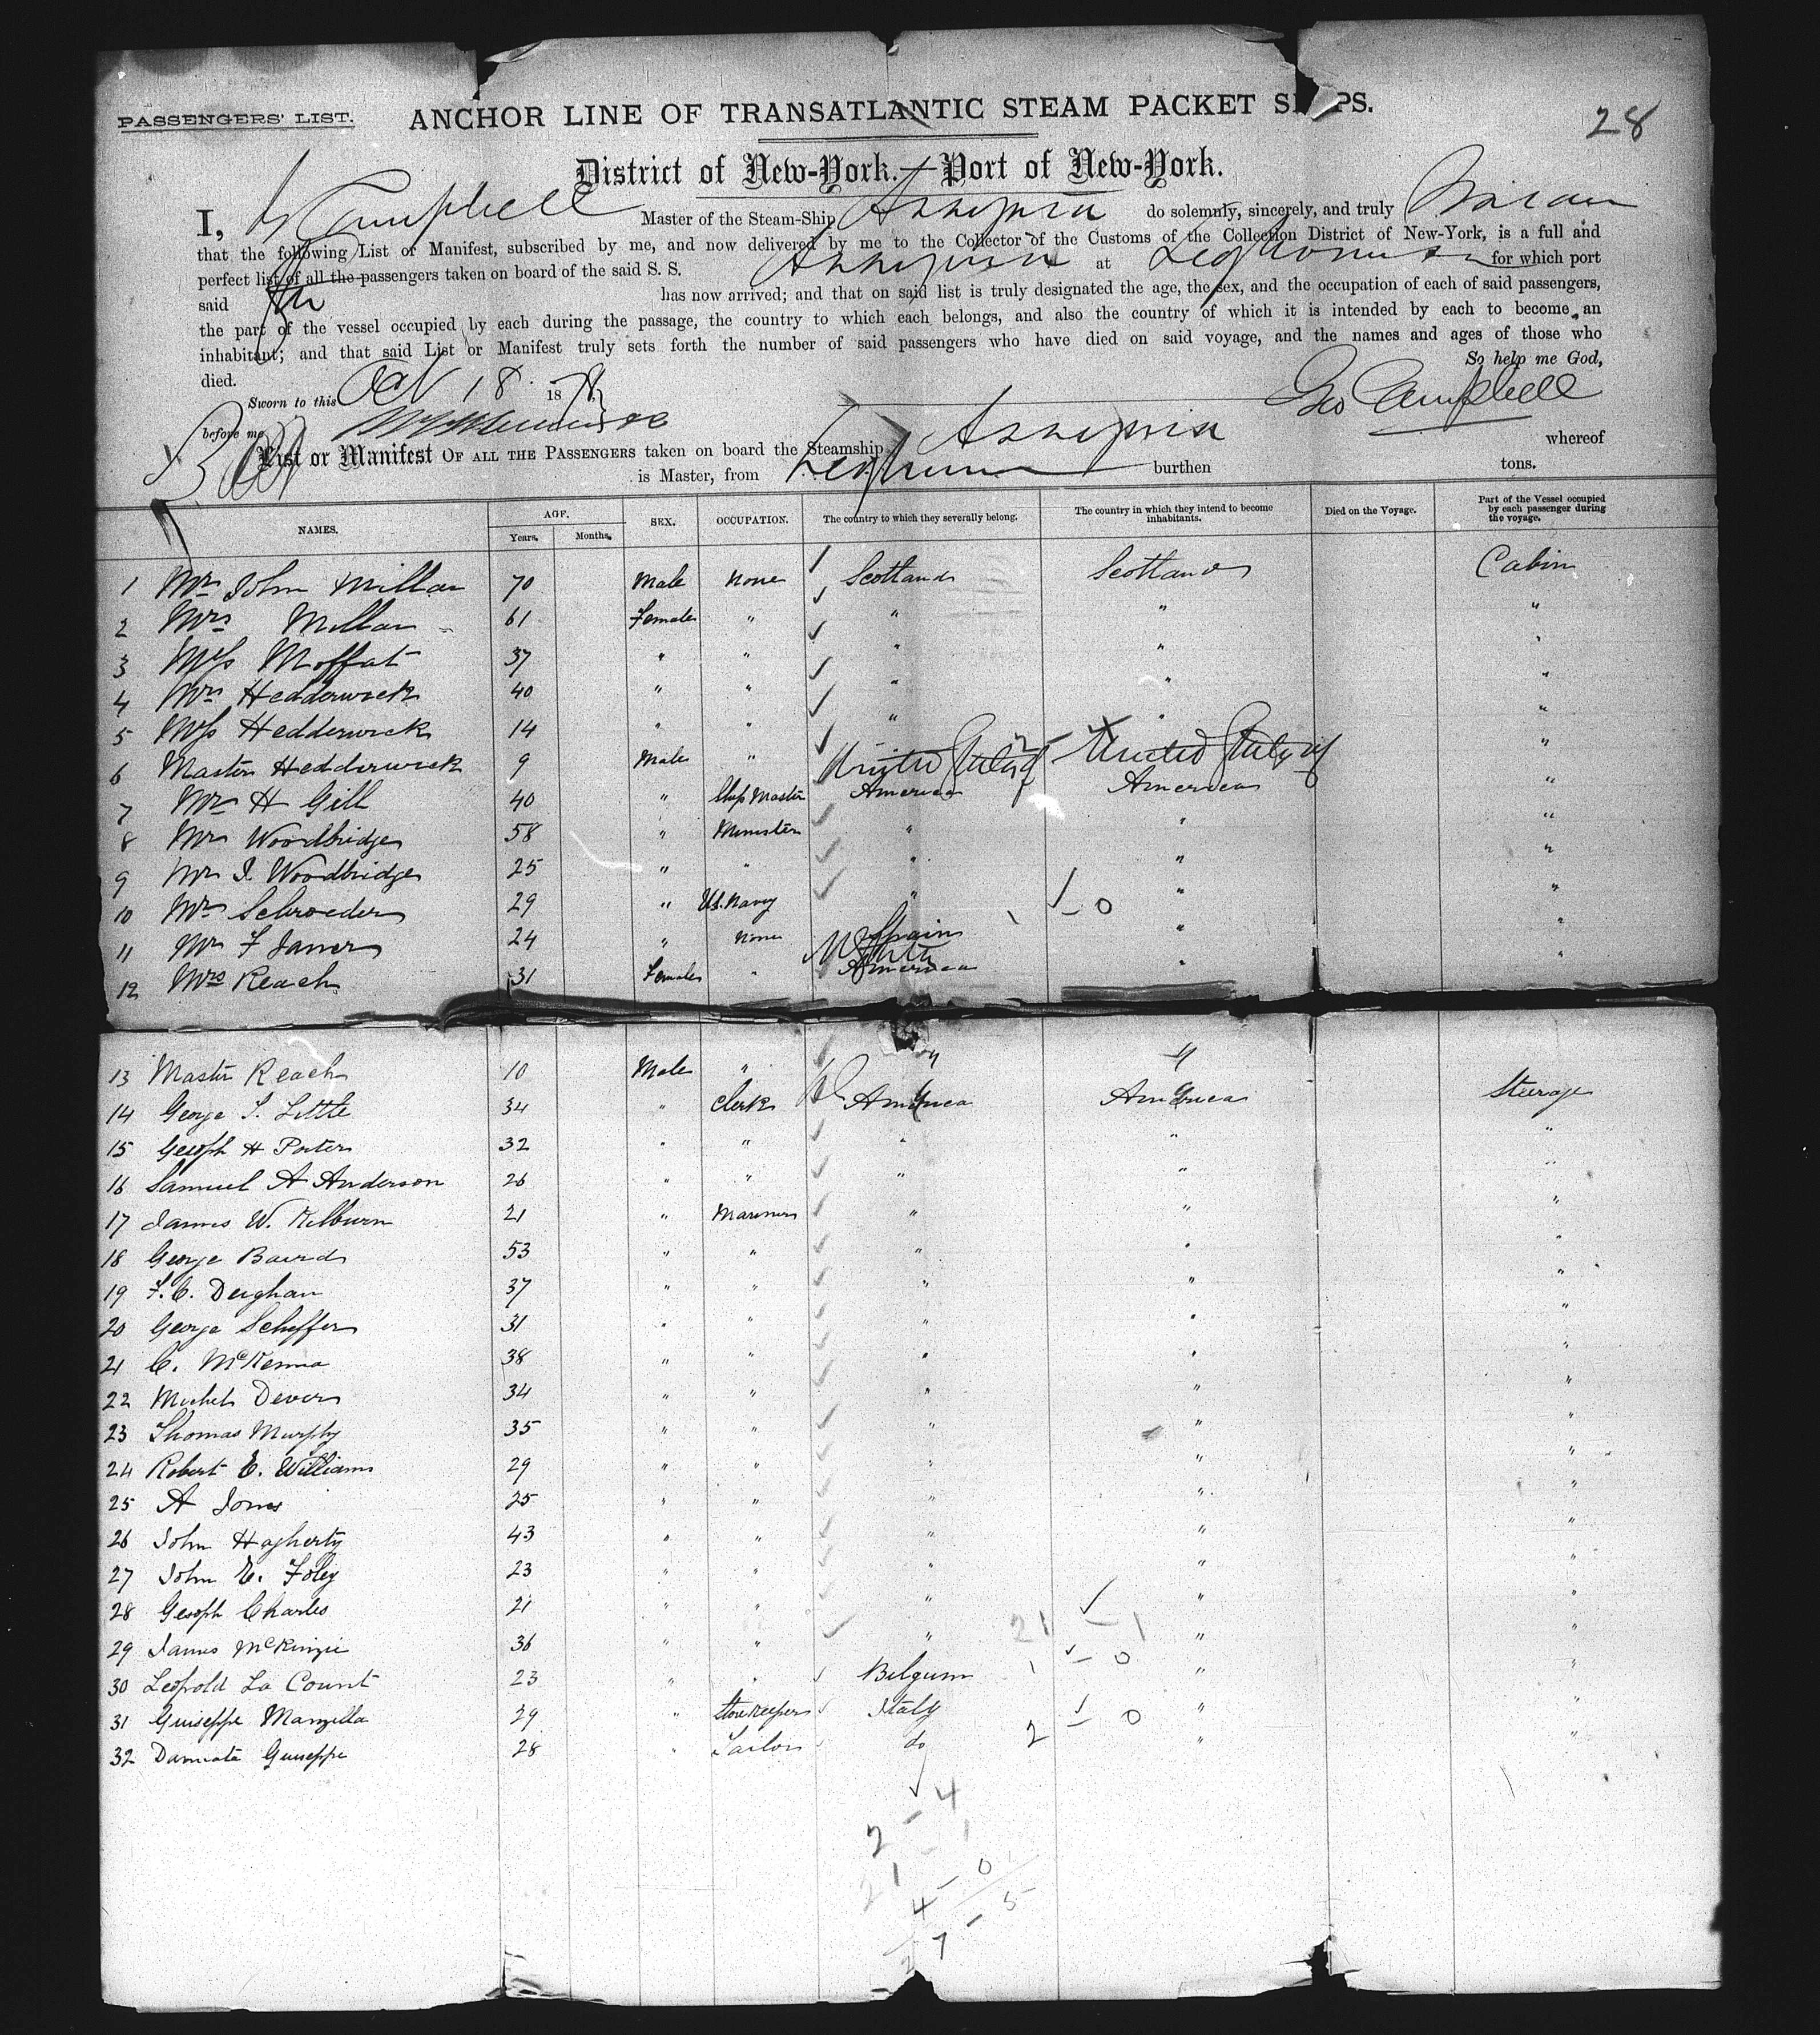 PASSENGERS' LIST. ANCHOR LINE OF TRANSATLANTIC STEAM PACKET SHIPS. 28
District of New-York.—Port of New-York.
I, G Campbell Master of the Steam-Ship Assyria do solemnly, sincerely, and truly Swear
that the following List or Manifest, subscribed by me, and now delivered by me to the Collector of the Customs of the Collection District of New-York, is a full and
perfect list of all the passengers taken on board of the said S. S. Assyria at Leghorn for which port
said has now arrived; and that on said list is truly designated the age, the sex, and the occupation of each of said passengers,
the part of the vessel occupied by each during the passage, the country to which each belongs, and also the country of which it is intended by each to become an
inhabitant; and that said List or Manifest truly sets forth the number of said passengers who have died on said voyage, and the names and ages of those who
died. So help me God,
Sworn to this Oct 18 1878 Geo Campbell
before me
List or Manifest OF ALL THE PASSENGERS taken on board the Steamship Assyria whereof
is Master, from Leghorn burthen tons.
NAMES. AGE. Years. Months. SEX. OCCUPATION. The country to which they severally belong. The country in which they intend to become inhabitants. Died on the Voyage. Part of the Vessel occupied by each passenger during the voyage.
1 Mr John Millar 70 Male None Scotland Scotland Cabin
2 Mrs Millar 61 Female " " " "
3 Miss Moffat 37 " " " " "
4 Mrs Hedderwick 40 " " " " "
5 Miss Hedderwick 14 " " " " "
6 Master Hedderwick 9 Male " United States of United States of "
7 Mr H Gill 40 " Ship Master America America "
8 Mr Woodbridge 58 " Minister " " "
9 Mr J. Woodbridge 25 " " " " "
10 Mr Schroeder 29 " U.S. Navy " " "
11 Mr F Janer 24 " None Spain " "
12 Mrs Reach 31 Female " America "
13 Master Reach 10 Male " " "
14 George S. Little 34 " Clerk America America Steerage
15 Geseph H Porter 32 " " " " "
16 Samuel A Anderson 26 " " " " "
17 James W. Kilburn 21 " Mariner " " "
18 George Baird 53 " " " " "
19 F. C. Deighan 37 " " " " "
20 George Scheffer 31 " " " " "
21 C. McKenna 38 " " " " "
22 Michel Dever 34 " " " " "
23 Thomas Murphy 35 " " " " "
24 Robert E. Williams 29 " " " " "
25 A Jones 25 " " " " "
26 John Hagherty 43 " " " " "
27 John E. Foley 23 " " " " "
28 Geseph Charles 21 " " " " "
29 James McKinzie 36 " " " 21 – 1 " "
30 Leopold La Count 23 " " Belgium 1 – 0 " "
31 Guiseppe Manzilla 29 " Storekeeper Italy " "
32 Damiata Guiseppe 28 " Tailor do 2 – 0 " "
2 – 4
21 – 1
4 – 0
27 – 5